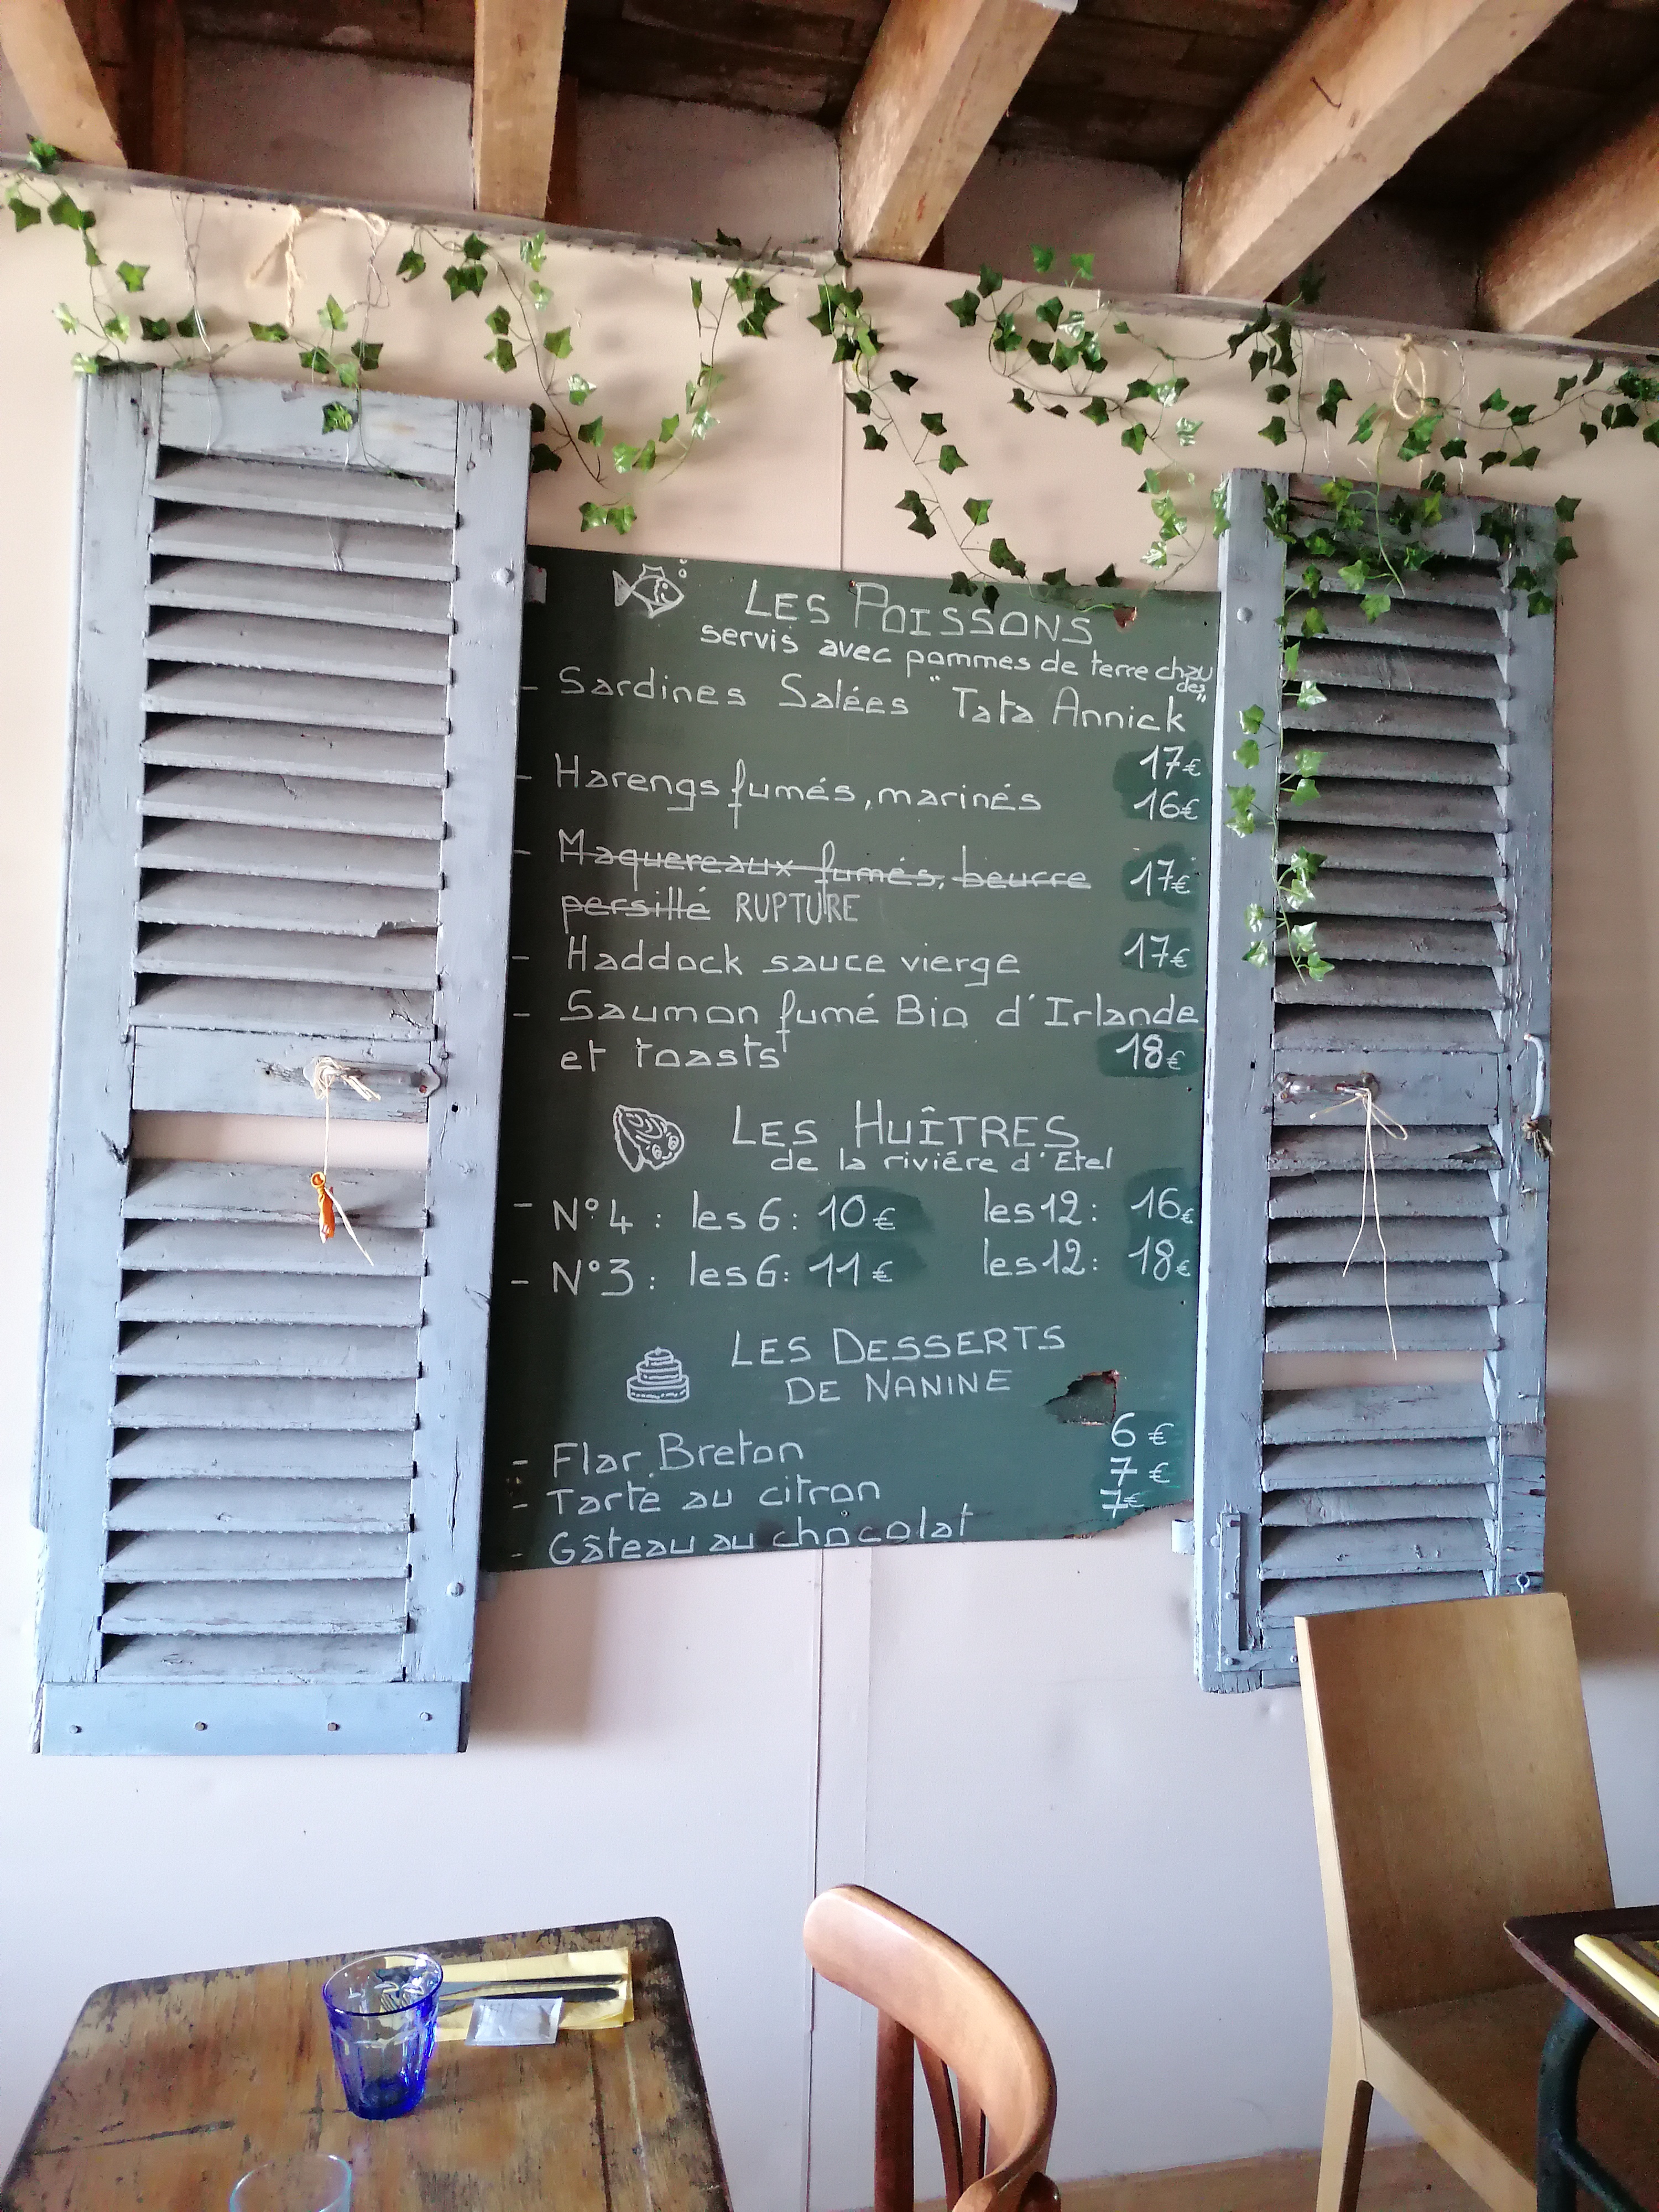 LES POISSONS
servis avec pommes de terre chau
des
- Sardines Salées "Tata Annick"
17€
- Harengs fumés, marinés 16€
- Maquereaux fumés, beurre 17€
persillé RUPTURE
- Haddock sauce vierge 17€
- Saumon fumé Bio d'Irlande
et toasts 18€
LES HUÎTRES
de la riviére d'Etel
- N°4 : les 6 : 10€ les 12 : 16€
- N°3 : les 6 : 11€ les 12 : 18€
LES DESSERTS
DE NANINE
- Flar Breton 6€
- Tarte au citron 7€
- Gâteau au chocolat 7€